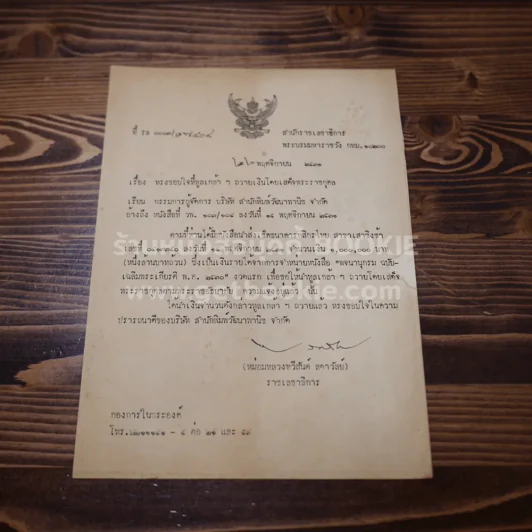 ที่ รล
สำนักราชเลขาธิการ
พระบรมมหาราชวัง กทม. ๑๐๒๐๐
๒๒ พฤศจิกายน ๒๕๓๑
เรื่อง ทรงขอบใจที่ทูลเกล้า ๆ ถวายเงินโดยเสด็จพระราชกุศล
เรียน กรรมการผู้จัดการ บริษัท สำนักพิมพ์วัฒนาพานิช จำกัด
อ้างถึง หนังสือที่ วพ. ลงวันที่ ๑๘ พฤศจิกายน ๒๕๓๑
ตามที่ท่านได้มีหนังสือนำส่งเช็คธนาคารกสิกรไทย สาขาเสาชิงช้า
พฤศจิกายน จำนวนเงิน ๑,๐๐๐,๐๐๐ บาท
(หนึ่งล้านบาทถ้วน) ซึ่งเป็นเงินรายได้จากการจำหน่ายหนังสือ "พจนานุกรม ฉบับ-
เฉลิมพระเกียรติ พ.ศ. ๒๕๓๐" งวดแรก เพื่อขอให้นำทูลเกล้า ๆ ถวายโดยเสด็จ
พระราชกุศลตามพระราชอัธยาศัย ความแจ้งอยู่แล้ว นั้น
ได้นำเงินจำนวนดังกล่าวทูลเกล้า ๆ ถวายแล้ว ทรงขอบใจในความ
ปรารถนาดีของบริษัท สำนักพิมพ์วัฒนาพานิช จำกัด
(หม่อมหลวงทวีสันต์ ลดาวัลย์)
ราชเลขาธิการ
กองการในพระองค์
โทร. ต่อ ๒๑ และ ๔๙